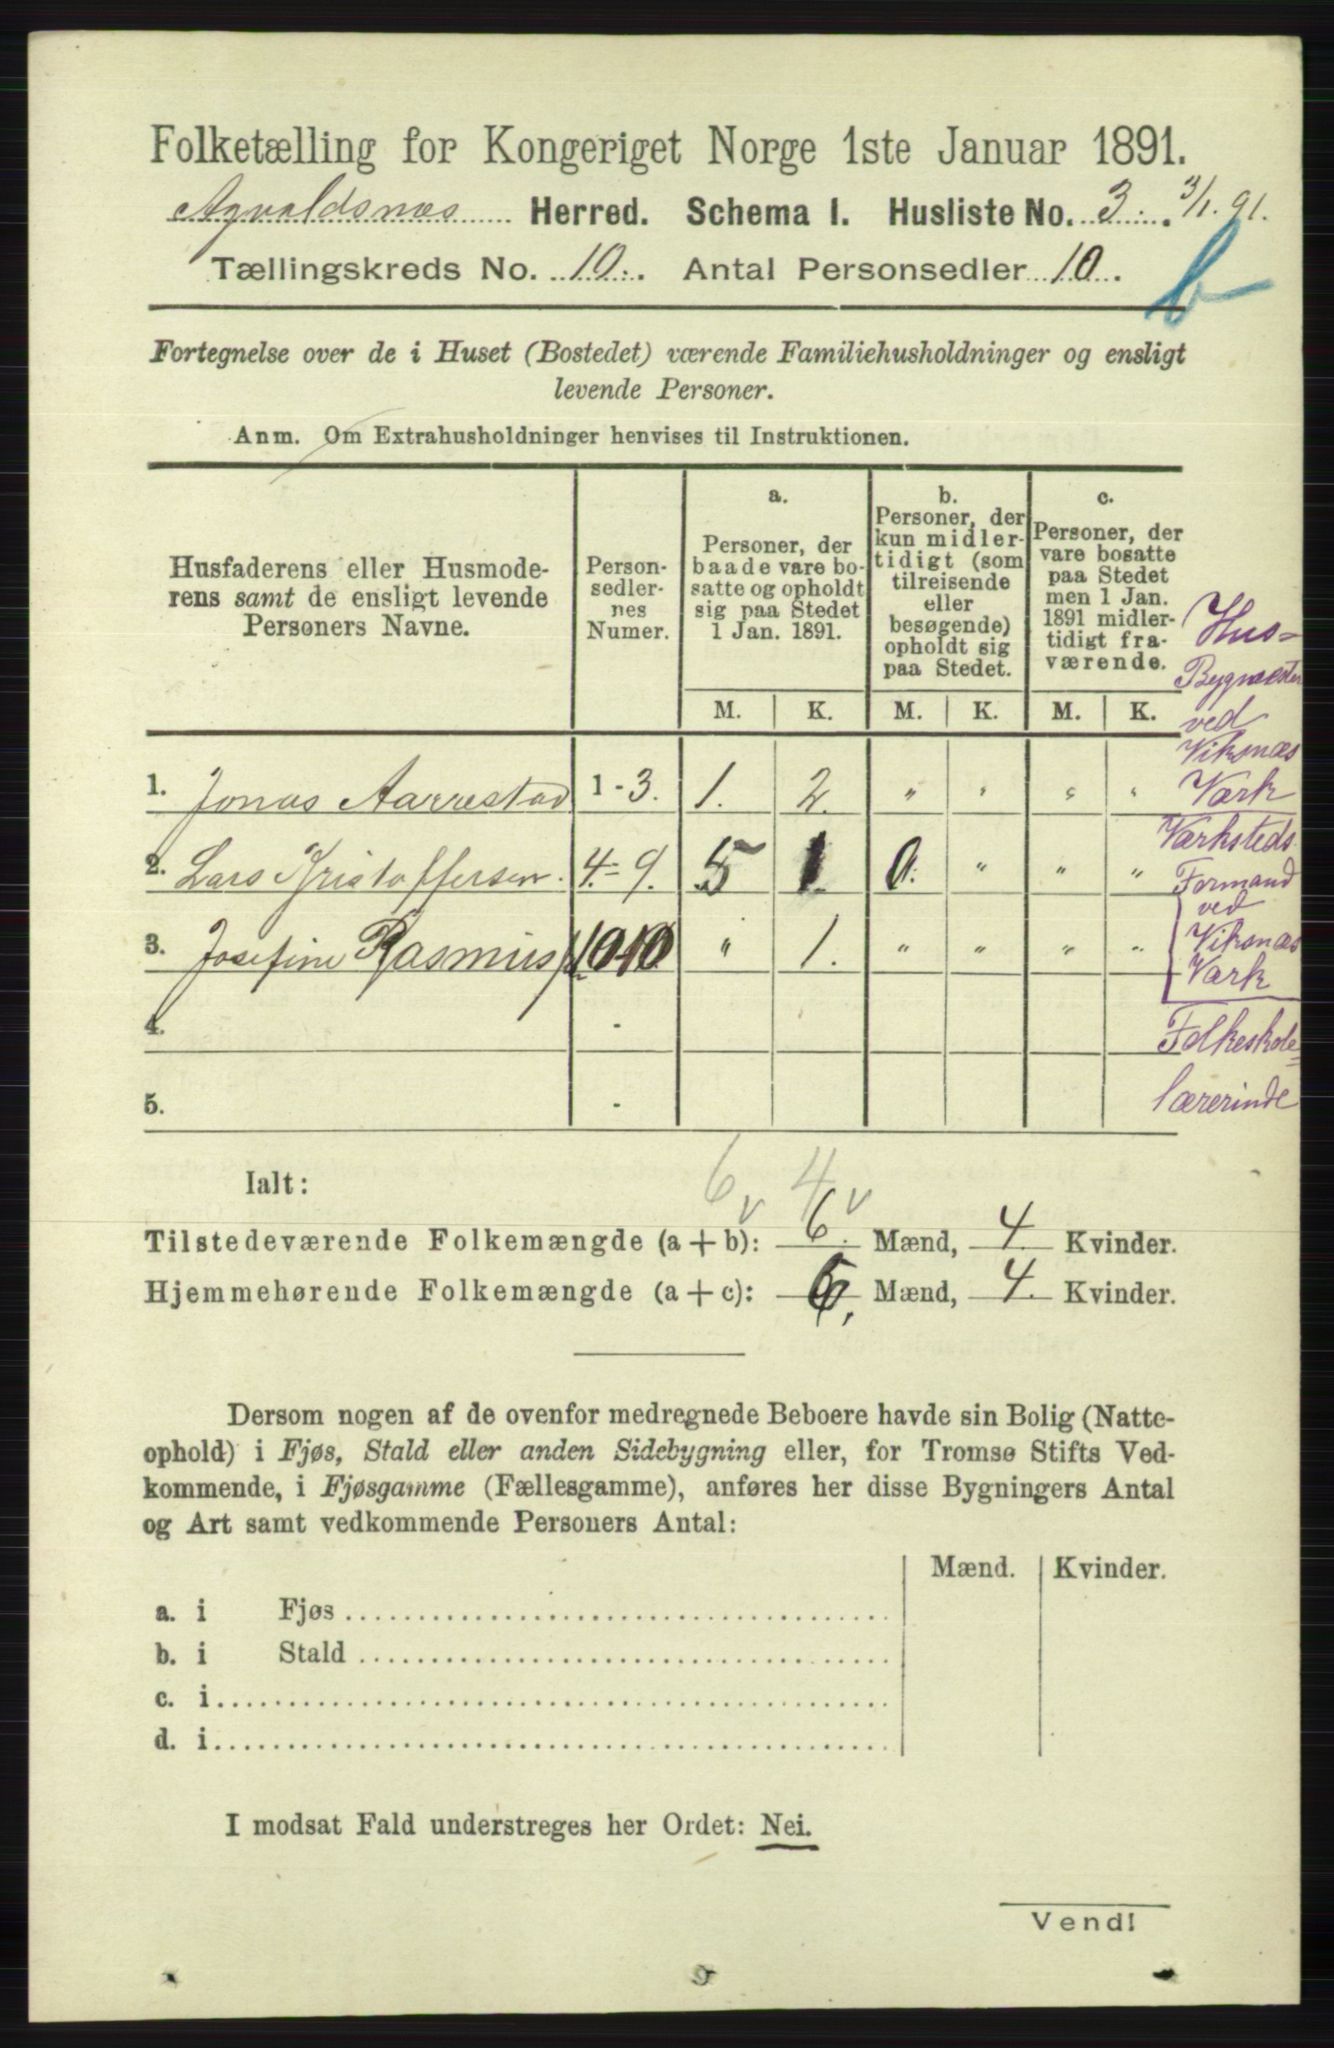 Folketælling for Kongeriget Norge 1ste Januar 1891.
Agvaldsnæs Herred. Schema I. Husliste No. 3. 3/1. 91.
Tællingskreds No. 10. Antal Personsedler 10.
b
Fortegnelse over de i Huset (Bostedet) værende Familiehusholdninger og ensligt
levende Personer.
Anm. Om Extrahusholdninger henvises til Instruktionen.
Husfaderens eller Husmode-
rens samt de ensligt levende
Personers Navne.
Person-
sedler-
nes
Numer.
a.
Personer, der
baade vare bo-
satte og opholdt
sig paa Stedet
1 Jan. 1891.
b.
Personer, der
kun midler-
tidigt (som
tilreisende
eller
besøgende)
opholdt sig
paa Stedet.
c.
Personer, der
vare bosatte
paa Stedet
men 1 Jan.
1891 midler-
tidigt fra-
værende.
M. K. M. K. M. K.
1. Jonas Aarrestad 1 - 3. 1. 2. " " " "
Hus-
Bygmester
ved
Viksnæs
Værk
2. Lars Kristoffersen. 4. - 9. 5 1 0. " " "
Værksteds
Formand
ved
Viksnæs
Værk
3. Josefine Rasmus 10 " 1. " " " "
4. -
Folkeskole=
5. -
lærerinde
Ialt:
6 v 4 v
Tilstedeværende Folkemængde (a + b): 6. Mænd, 4. Kvinder.
Hjemmehørende Folkemængde (a + c): 6. Mænd, 4. Kvinder.
Dersom nogen af de ovenfor medregnede Beboere havde sin Bolig (Natte-
ophold) i Fjøs, Stald eller anden Sidebygning eller, for Tromsø Stifts Ved-
kommende, i Fjøsgamme (Fællesgamme), anføres her disse Bygningers Antal
og Art samt vedkommende Personers Antal:
Mænd. Kvinder.
a. i Fjøs
b. i Stald
c. i
d. i
I modsat Fald understreges her Ordet: Nei.
Vend!